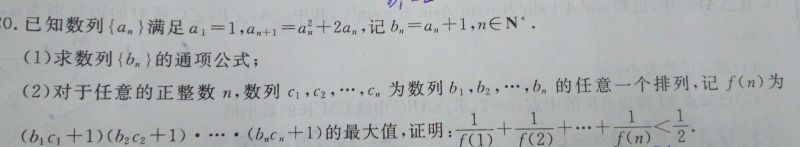 0. 已知数列{aₙ}满足 a₁=1,aₙ₊₁=aₙ²+2aₙ,记 bₙ=aₙ+1,n∈N*.
(1)求数列{bₙ}的通项公式;
(2)对于任意的正整数 n,数列 c₁,c₂,⋯,cₙ 为数列 b₁,b₂,⋯,bₙ 的任意一个排列,记 f(n)为
(b₁c₁+1)(b₂c₂+1)·⋯·(bₙcₙ+1)的最大值,证明:1/f(1)+1/f(2)+⋯+1/f(n)<1/2.